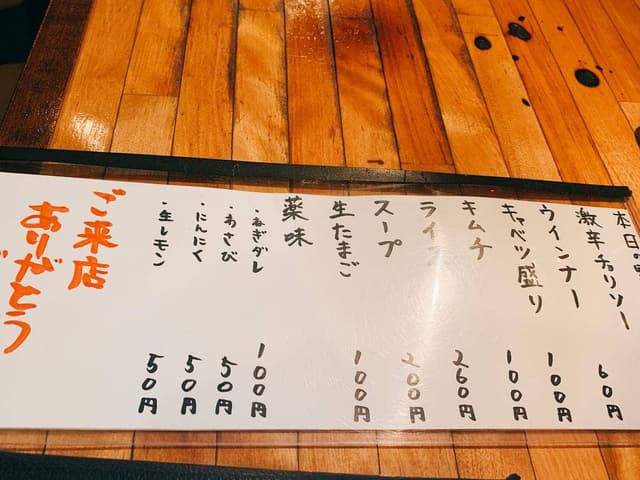 本日の
激辛チョリソー 60円
ウインナー 100円
キャベツ盛り 100円
キムチ 260円
ライス 200円
スープ
生たまご 100円
薬味
・ねぎダレ 100円
・わさび 50円
・にんにく 50円
・生レモン 50円
ご来店
ありがとう